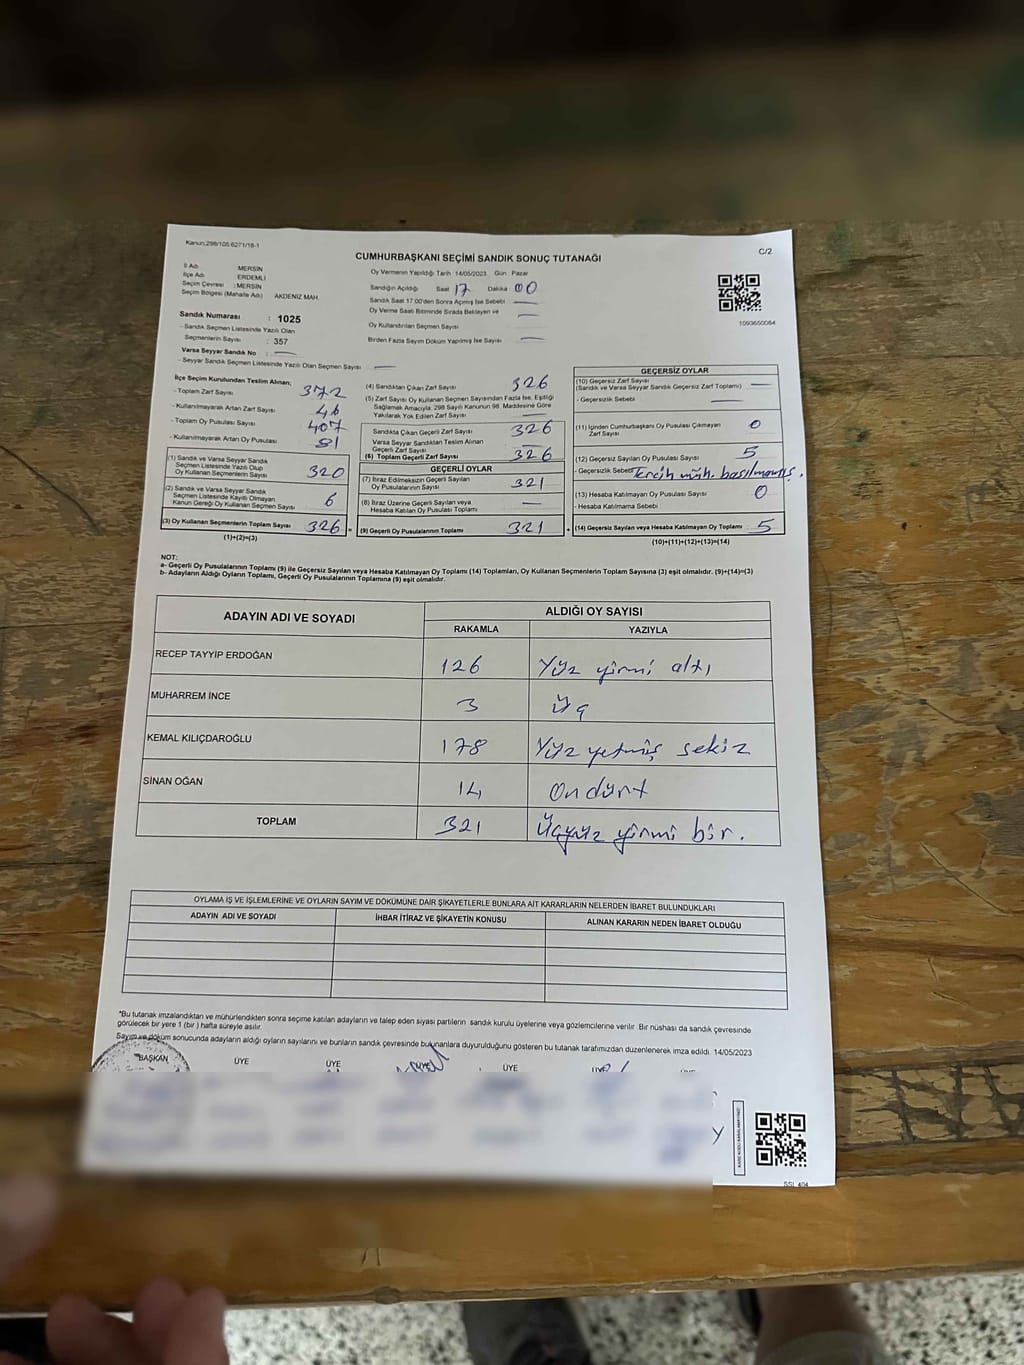 Kanun:298/105 6271/18-1
C/2
CUMHURBAŞKANI SEÇİMİ SANDIK SONUÇ TUTANAĞI
İl Adı MERSİN
İlçe Adı ERDEMLİ
Seçim Çevresi :MERSİN
Seçim Bölgesi (Mahalle Adı) AKDENİZ MAH.
Sandık Numarası : 1025
- Sandık Seçmen Listesinde Yazılı Olan
Seçmenlerin Sayısı : 357
Varsa Seyyar Sandık No :
- Seyyar Sandık Seçmen Listesinde Yazılı Olan Seçmen Sayısı
Oy Vermenin Yapıldığı Tarih 14/05/2023 Gün : Pazar
Sandığın Açıldığı Saat 17 Dakika 00
Sandık Saat 17:00'den Sonra Açılmış İse Sebebi
Oy Verme Saati Bitiminde Sırada Bekleyen ve
Oy Kullandırılan Seçmen Sayısı
Birden Fazla Sayım Döküm Yapılmış İse Sayısı
1093650064
İlçe Seçim Kurulundan Teslim Alınan;
- Toplam Zarf Sayısı 372
- Kullanılmayarak Artan Zarf Sayısı 46
- Toplam Oy Pusulası Sayısı 407
- Kullanılmayarak Artan Oy Pusulası 81
(1) Sandık ve Varsa Seyyar Sandık
Seçmen Listesinde Yazılı Olup
Oy Kullanan Seçmenlerin Sayısı 320
(2) Sandık ve Varsa Seyyar Sandık
Seçmen Listesinde Kayıtlı Olmayan
Kanun Gereği Oy Kullanan Seçmen Sayısı 6
(3) Oy Kullanan Seçmenlerin Toplam Sayısı 326 =
(1)+(2)=(3)
(4) Sandıktan Çıkan Zarf Sayısı 326
(5) Zarf Sayısı Oy Kullanan Seçmen Sayısından Fazla İse, Eşitliği
Sağlamak Amacıyla; 298 Sayılı Kanunun 98. Maddesine Göre
Yakılarak Yok Edilen Zarf Sayısı
Sandıkta Çıkan Geçerli Zarf Sayısı 326
Varsa Seyyar Sandıktan Teslim Alınan
Geçerli Zarf Sayısı
(6) Toplam Geçerli Zarf Sayısı 326
GEÇERLİ OYLAR
(7) İtiraz Edilmeksizin Geçerli Sayılan
Oy Pusulalarının Sayısı 321
(8) İtiraz Üzerine Geçerli Sayılan veya
Hesaba Katılan Oy Pusulası Toplamı
(9) Geçerli Oy Pusulalarının Toplamı 321 +
GEÇERSİZ OYLAR
(10) Geçersiz Zarf Sayısı
(Sandık ve Varsa Seyyar Sandık Geçersiz Zarf Toplamı)
- Geçersizlik Sebebi
(11) İçinden Cumhurbaşkanı Oy Pusulası Çıkmayan
Zarf Sayısı 0
(12) Geçersiz Sayılan Oy Pusulası Sayısı 5
- Geçersizlik Sebebi Tercih müh. basılmamış.
(13) Hesaba Katılmayan Oy Pusulası Sayısı 0
- Hesaba Katılmama Sebebi
(14) Geçersiz Sayılan veya Hesaba Katılmayan Oy Toplamı 5
(10)+(11)+(12)+(13)=(14)
NOT:
a- Geçerli Oy Pusulalarının Toplamı (9) ile Geçersiz Sayılan veya Hesaba Katılmayan Oy Toplamı (14) Toplamları, Oy Kullanan Seçmenlerin Toplam Sayısına (3) eşit olmalıdır. (9)+(14)=(3)
b- Adayların Aldığı Oyların Toplamı, Geçerli Oy Pusulalarının Toplamına (9) eşit olmalıdır.
ADAYIN ADI VE SOYADI ALDIĞI OY SAYISI
RAKAMLA YAZIYLA
RECEP TAYYİP ERDOĞAN 126 Yüz yirmi altı
MUHARREM İNCE 3 Üç
KEMAL KILIÇDAROĞLU 178 Yüz yetmiş sekiz
SİNAN OĞAN 14 On dört
TOPLAM 321 Üçyüz yirmi bir.
OYLAMA İŞ VE İŞLEMLERİNE VE OYLARIN SAYIM VE DÖKÜMÜNE DAİR ŞİKAYETLERLE BUNLARA AİT KARARLARIN NELERDEN İBARET BULUNDUKLARI
ADAYIN ADI VE SOYADI İHBAR İTİRAZ VE ŞİKAYETİN KONUSU ALINAN KARARIN NEDEN İBARET OLDUĞU
*Bu tutanak imzalandıktan ve mühürlendikten sonra seçime katılan adayların ve talep eden siyasi partilerin sandık kurulu üyelerine veya gözlemcilerine verilir. Bir nüshası da sandık çevresinde
görülecek bir yere 1 (bir ) hafta süreyle asılır.
Sayım ve döküm sonucunda adayların aldığı oyların sayılarını ve bunların sandık çevresinde bulunanlara duyurulduğunu gösteren bu tutanak tarafımızdan düzenlenerek imza edildi. 14/05/2023
BAŞKAN ÜYE ÜYE ÜYE ÜYE
SSI_404